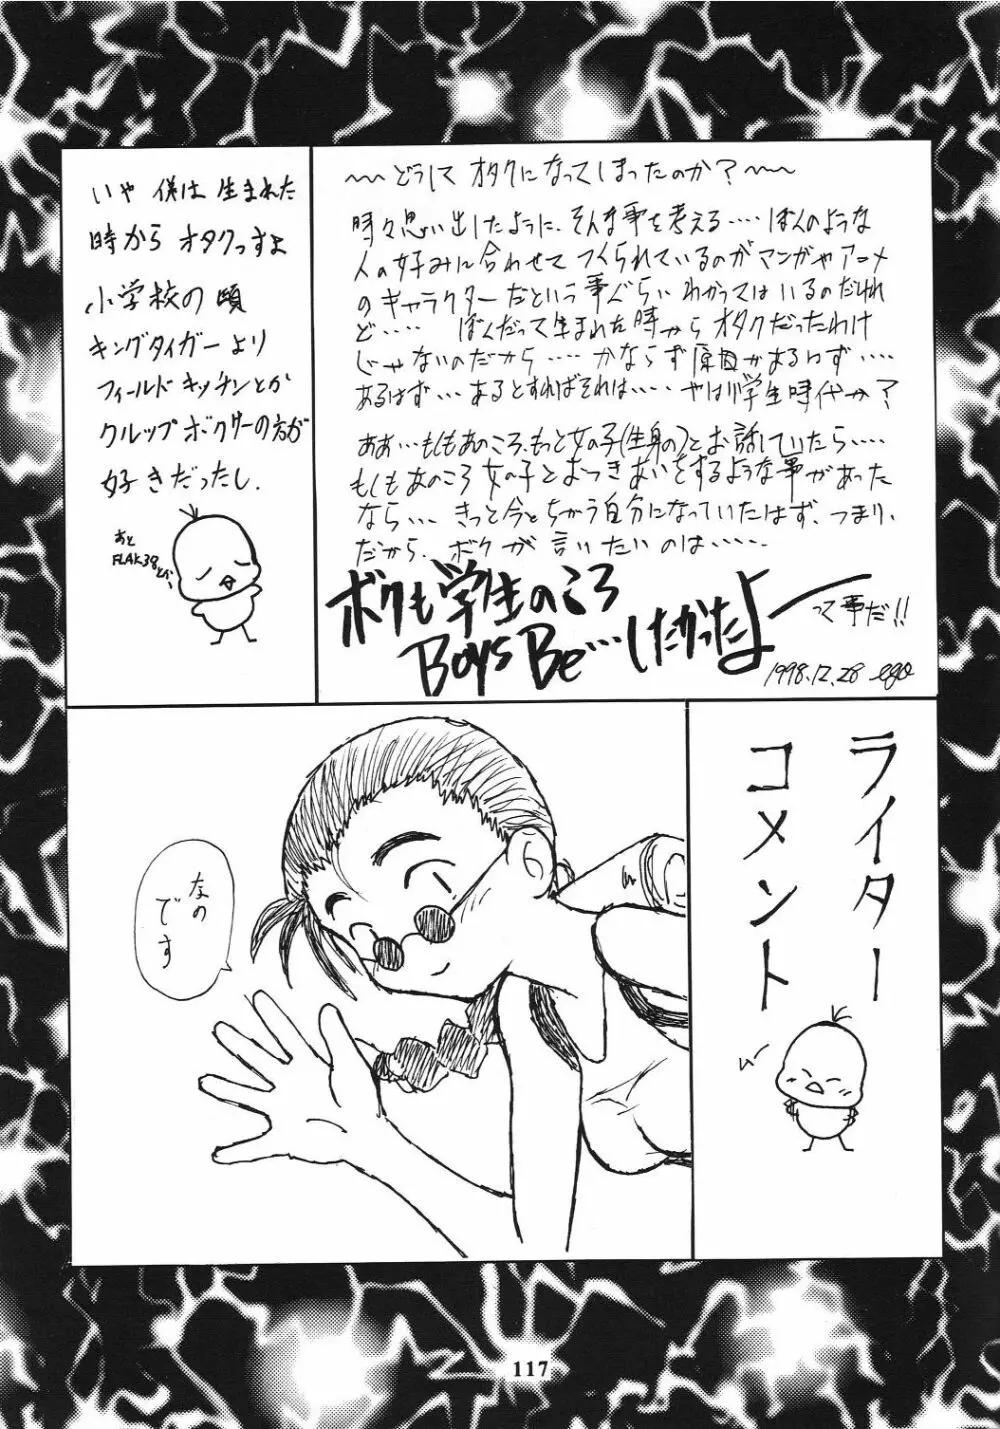 ~~どうして オタクになってしまったのか？~~
時々思い出したように、そんな事を考える‥‥ ぼくのような
人の好みに合わせて つくられているのがマンガやアニメ
のキャラクターだという事ぐらい わかってはいるのだけれ
ど‥‥‥ ぼくだって生まれた時から オタクだったわけ
じゃないのだから‥‥ かならず原因があるはず‥‥
あるはず‥‥あるとすればそれは‥‥ やはり学生時代か？
ああ‥もしもあのころ、もっと女の子(生身の)とお話していたら‥‥
もしもあのころ 女の子とおつきあいをするような事があった
なら‥‥ きっと今とちがう自分になっていたはず、つまり、
だから、ボクが 言いたいのは‥‥‥
ボクも学生のころ
Boys Be…したかったよー
って事だ!!
1998.12.28 ego
いや 僕は 生まれた
時から オタクっすよ
小学校の頃
キングタイガーより
フィールドキッチンとか
クルップボクサーの方が
好きだったし.
あと
FLAK38とか、
ライター
コメント
なの
です
117